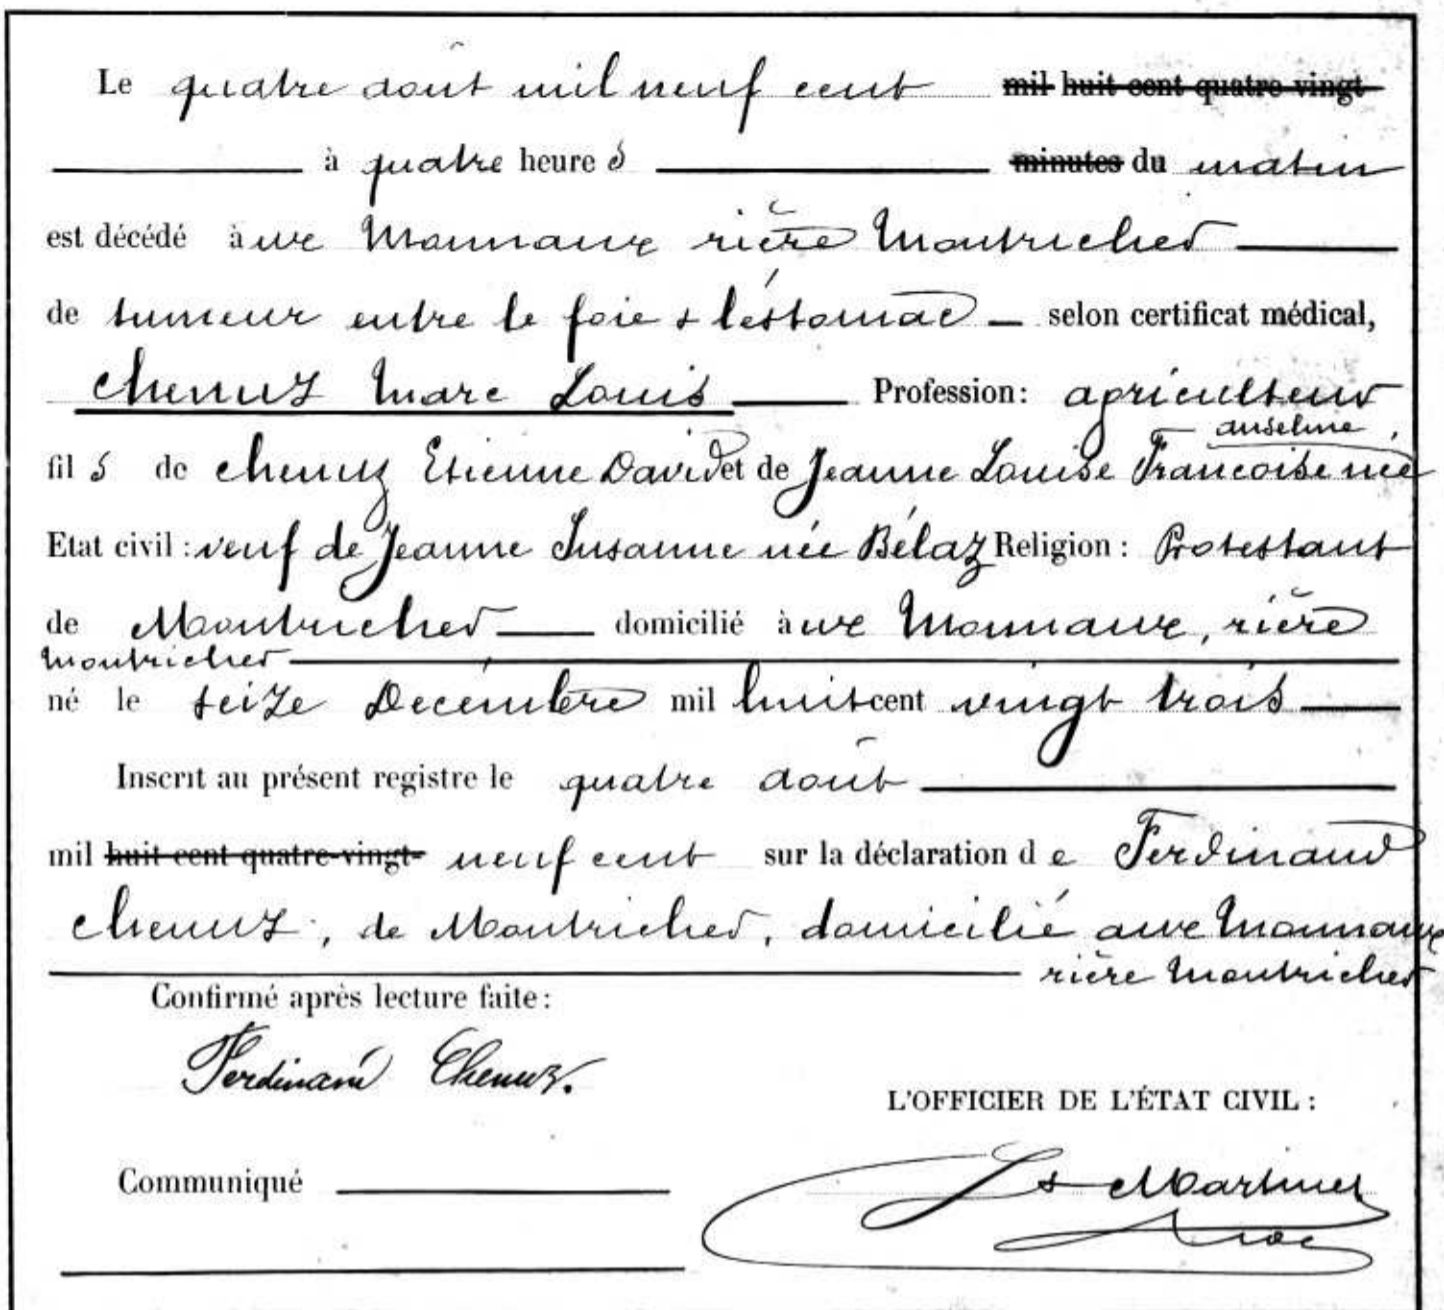 Le quatre août mil neuf cent mil huit cent quatre-vingt
à quatre heures minutes du matin
est décédé à ux Monnaux rière Montricher
de tumeur entre le foie & l'estomac — selon certificat médical,
Chenuz Marc Louis Profession: agriculteur
fils de Chenuz Etienne David et de Jeanne Louise Françoise née
Anselme
Etat civil: veuf de Jeanne Susanne née Bélaz Religion: Protestant
de Montricher domicilié à ux Monnaux, rière
Montricher
né le seize Décembre mil huit cent vingt trois
Inscrit au présent registre le quatre août
mil huit cent quatre-vingt- neuf cent sur la déclaration de Ferdinand
Chenuz, de Montricher, domicilié aux Monnaux
rière Montricher
Confirmé après lecture faite:
Ferdinand Chenuz.
L'OFFICIER DE L'ÉTAT CIVIL:
Communiqué
Ls Martinet